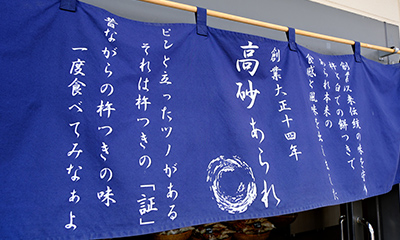 創業以来伝統の味を守り
杵と臼での餅つきで
あられ本来の
食感と風味を
創業大正十四年
高砂あられ
ピンと立ったツノがある
それは杵つきの「証」
昔ながらの杵つきの味
一度食べてみなぁよ